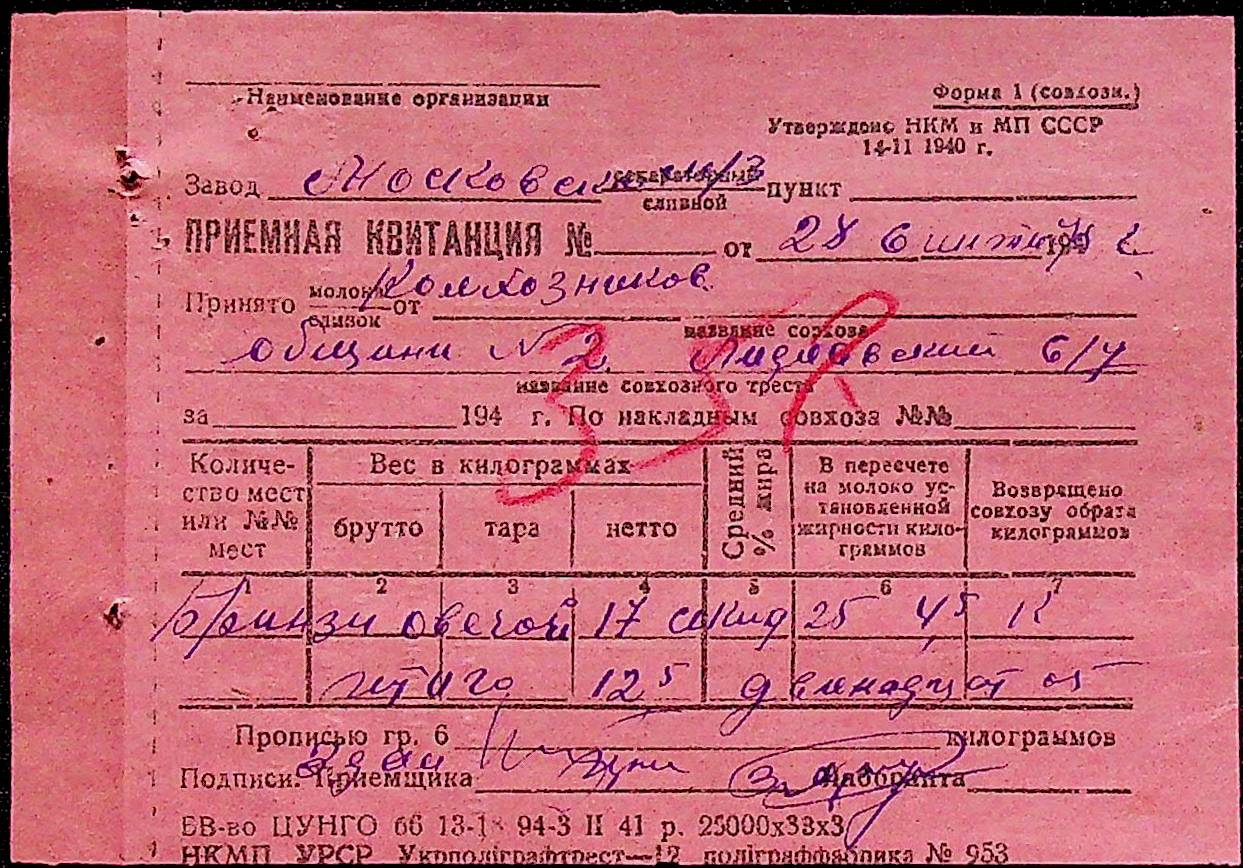 Наименование организации
Форма 1 (совхозн.)
Утверждено НКМ и МП СССР
14-11 1940 г.
Завод Московски сепараторный м/з пункт
сливной
ПРИЕМНАЯ КВИТАНЦИЯ № от 28
Принято молока от Колхозников
сливок
название совхоза
общини № 2 с/у
название совхозного треста
за 194 г. По накладным совхоза №№
Количе-
ство мест
или №№
мест
Вес в килограммах
брутто тара нетто
Средний
% жира
В пересчете
на молоко ус-
тановленной
жирности кило-
граммов
Возвращено
совхозу обрата
килограммов
1 2 3 4 5 6 7
Бринзи овечой 17 скид 25 4,5 К
итого 12 5 двенадцат 05
Прописью гр. 6 килограммов
Здал
Подписи: Приемщика Лаборанта
БВ-во ЦУНГО 66 13-1 94-3 II 41 р. 25000х33х3
НКМП УРСР Укрполіграфтрест—12 поліграффабрика № 953
35К